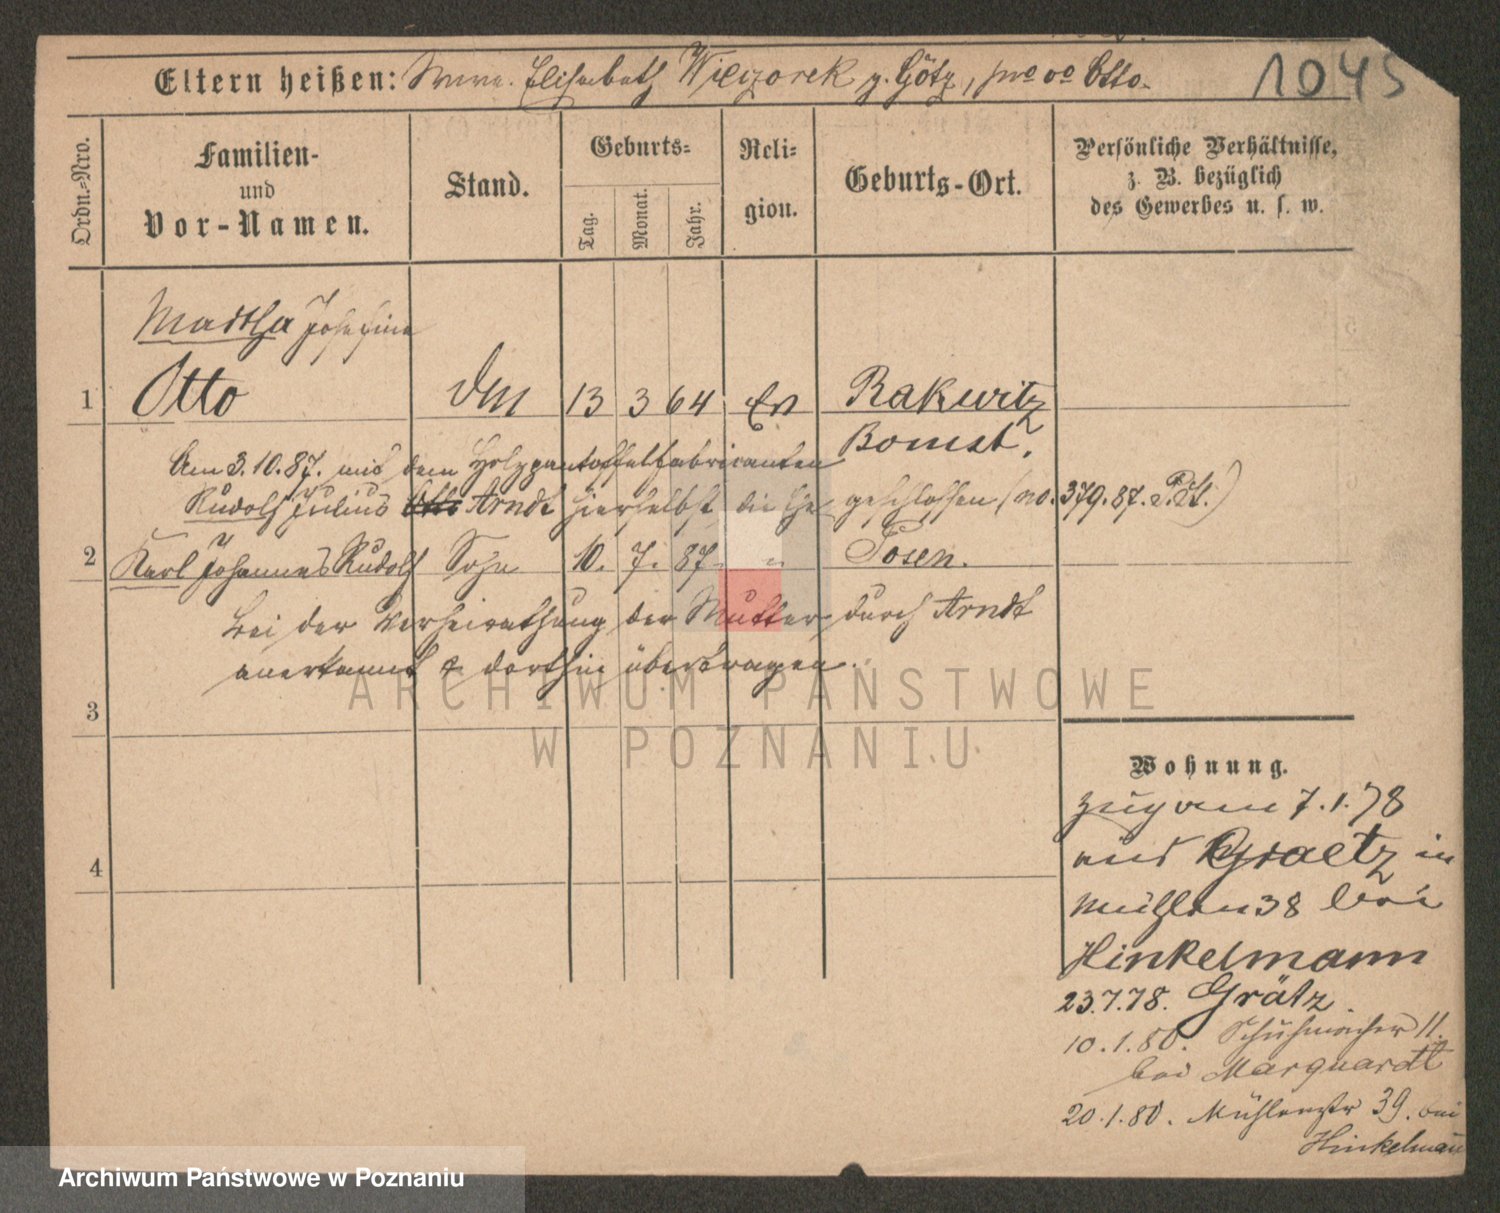 1045
Eltern heißen: Elisabeth Wieczorek g. Götz, Otto.
Ordn.-Nro.
Familien-
und
Vor-Namen.
Stand.
Geburts-
Tag.
Monat.
Jahr.
Reli-
gion.
Geburts-Ort.
Persönliche Verhältnisse,
z. B. bezüglich
des Gewerbes u. s. w.
Martha Josefine
1 Otto 13 3 64 Ev Rakwitz
Bomst.
Am 3.10.87. mit dem Holzpantoffelfabrikanten
Rudolf Julius Otto Arndt hierselbst die Ehe geschlossen (no. 379.87. P. St.)
2 Karl Johannes Rudolf Sohn 10. 7. 87 " Posen.
bei der Verheirathung der Mutter durch Arndt
anerkannt & dorthin übertragen.
3
4
Wohnung.
Zug am 7.1.78
aus Graetz in
Mühlen 38 bei
Hinkelmann
23.7.78. Grätz.
10.1.80. Schuhmacher 11.
bei Marquardt
20.1.80. Mühlenstr 39. bei
Hinkelmann
ARCHIWUM PAŃSTWOWE
W POZNANIU
Archiwum Państwowe w Poznaniu